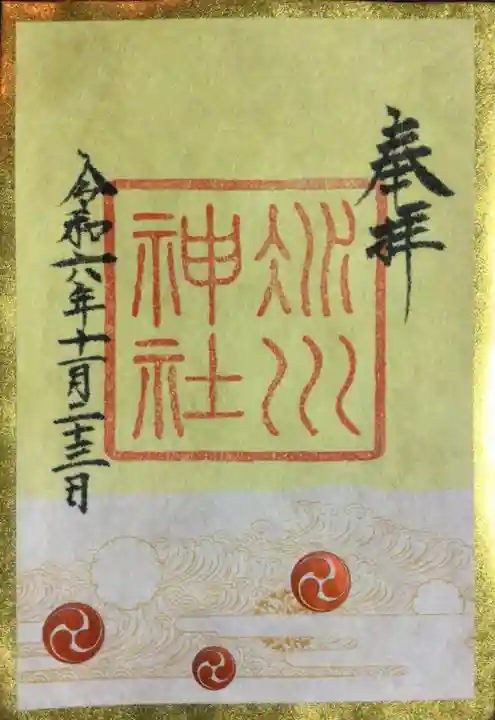 奉拝
氷川
神社
令和六年十一月二十三日